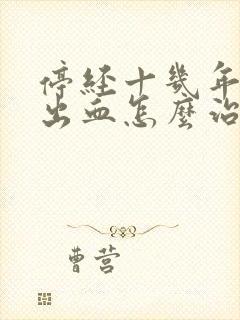 停经十几年
出血怎麼治
曹营